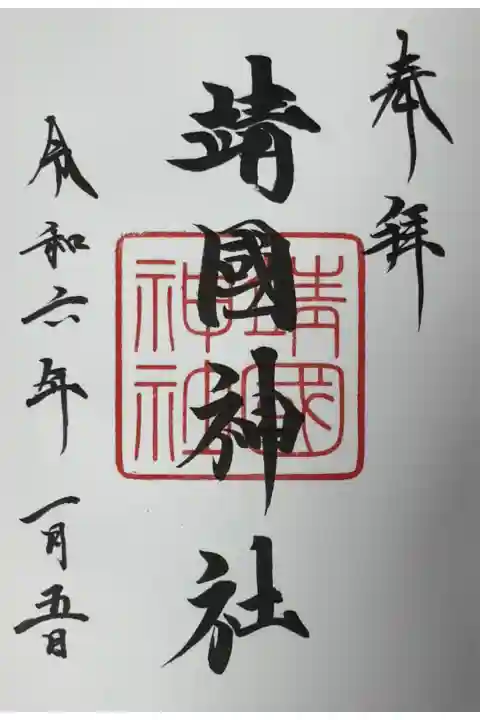 奉拜
靖國神社
靖國神社
令和六年一月五日